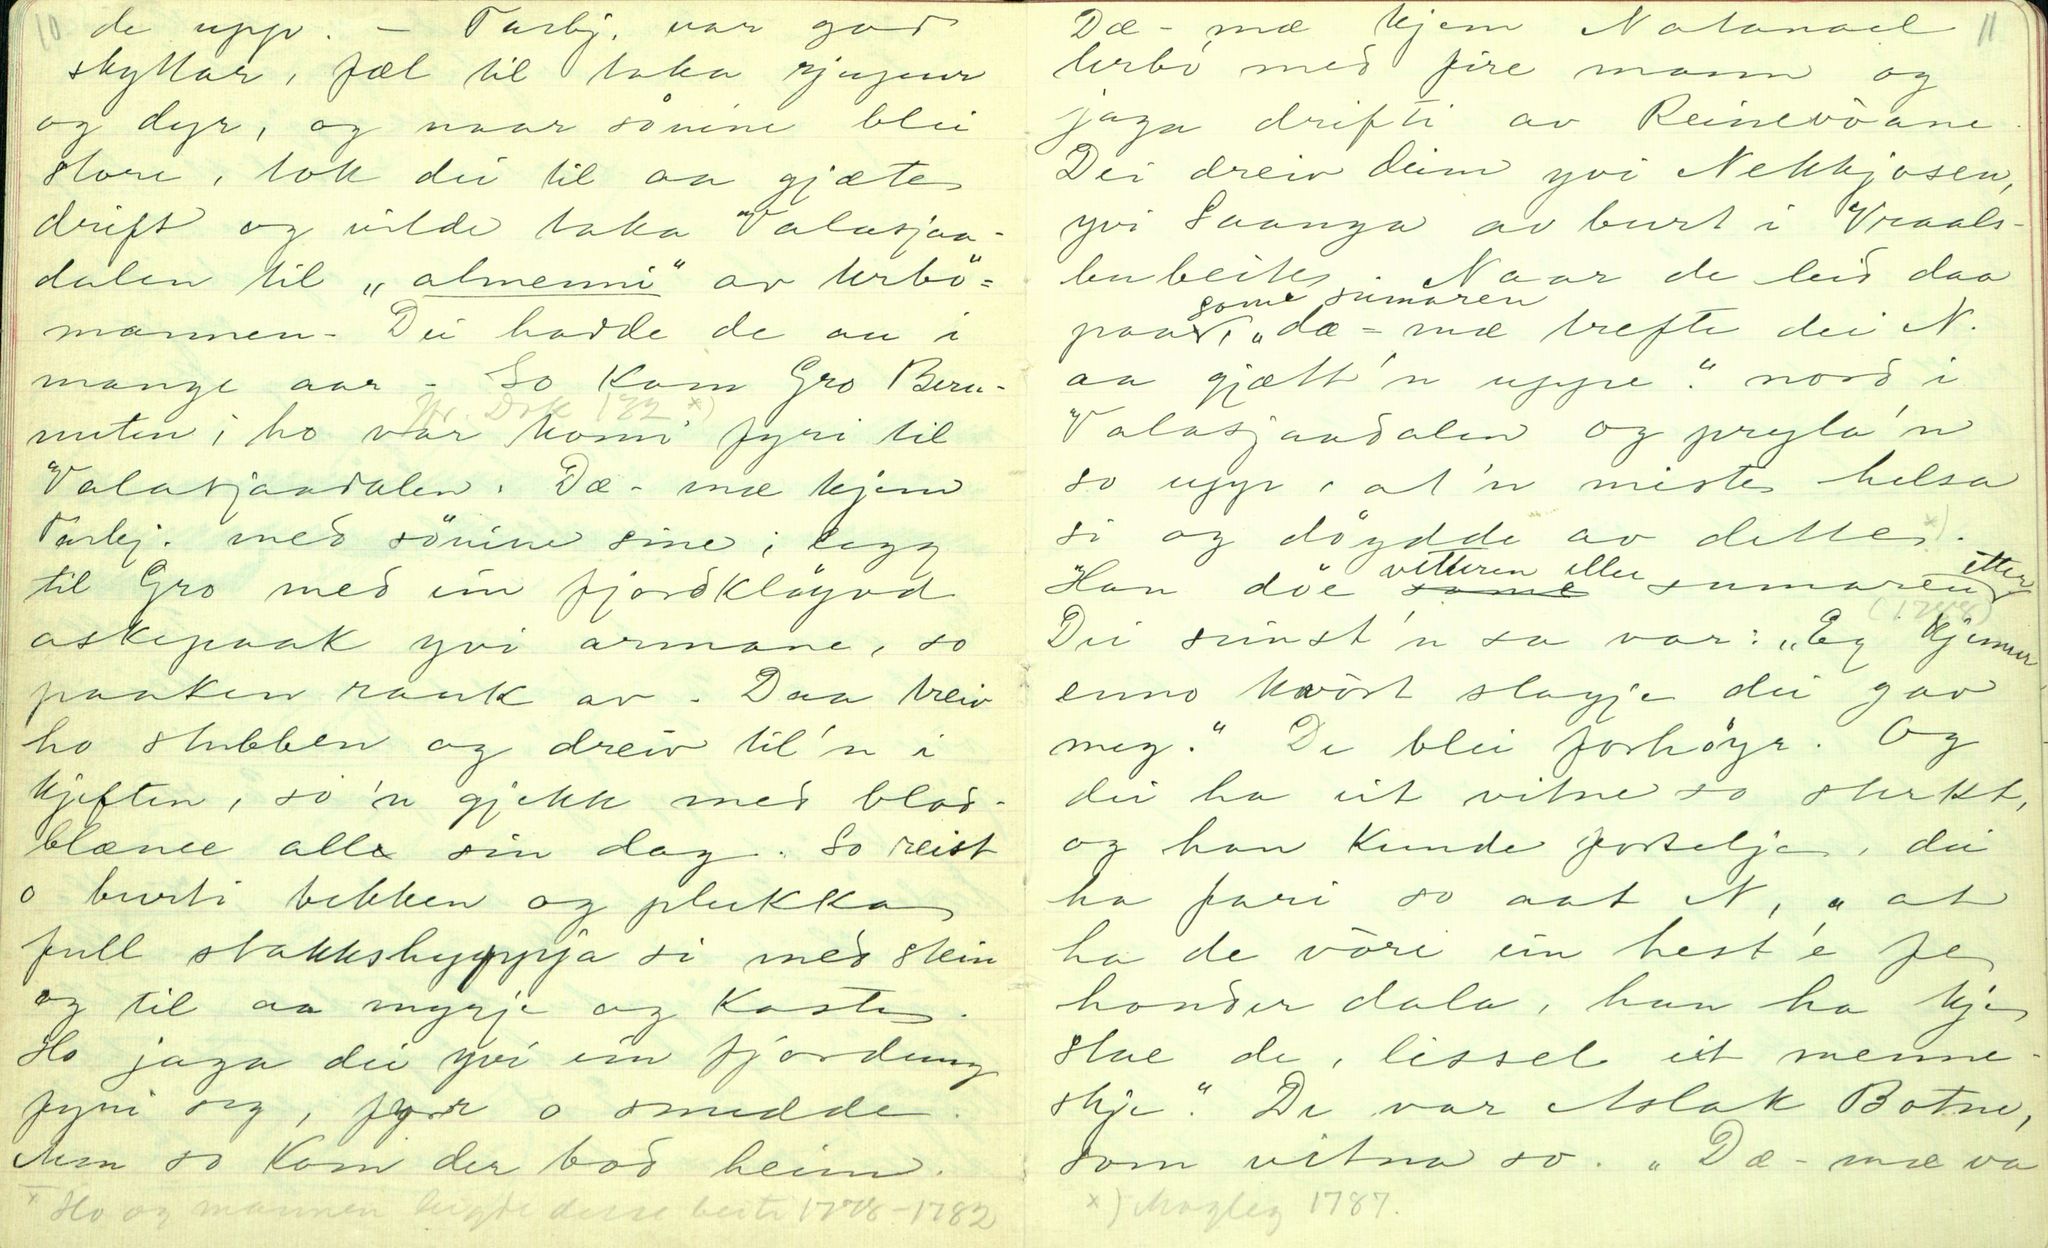 10
de upp. – Tarbj. var god
skyttar, fæl til taka rjupur
og dyr, og naar sönine blei
store, tok dei til aa gjæte
drift og vilde taka Valasjaa-
dalen til „almenni" av Urbö-
mannen – Dei hadde de au i
mange aar – So kom Gro Beru-
nuten; ho var komi fyri til
Valasjaadalen. Dæ-mæ kjem
Tarbj. med sönine sine; legg
til Gro med ein fjordkløyvd
askepaak yvi armane, so
paaken rauk av – Daa treiv
ho stubben og dreiv til'n i
kjeften, so'n gjekk med blod-
blænee alle sin dag. So reist
o burti bekken og plukka
full stakkshyppja si med stein
og til aa myrje og kaste.
Ho jaga dei yvi ein fjordung
fyri seg, fyrr o snudde.
Men so kom der bod heim.
x Ho og mannen leigde desse beiti 1778–1782
11
Dæ-mæ kjem Natanael
Urbö med fire mann og
jaga drifti av Reinevöane.
Dei dreiv deim yvi Nekkjosen,
yvi Saanga av burt i Vraals-
bubeite. Naar de leid daa
some sumaren
paa, „dæ-mæ trefte dei N.
aa gjætt'n uppe" nord i
Valasjaadalen og pryla'n
so upp, at'n miste helsa
si og döydde av dette. x)
Han döe some vetteren elle sumaren etter
(1788)
Dei sinst'n sa var: „Eg kjenner
enno kvört slagje dei gav
meg." De blei forhöyr. Og
dei ha eit vitne so sterkt,
og han kunde fortelja, dei
ha fari so aat N, „at
ha de vöri ein hest'e fe
honder dala, han ha kje
stae de, lissel eit menne-
skje". De var Aslak Botne,
som vitna so. „Dæ-mæ va
x) Mogleg 1787.